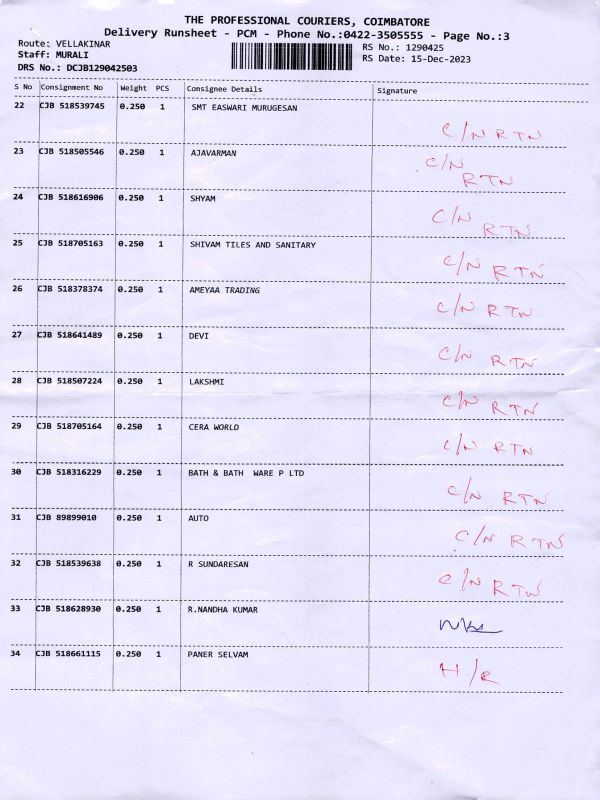 THE PROFESSIONAL COURIERS, COIMBATORE
Delivery Runsheet - PCM - Phone No.:0422-3505555 - Page No.:3
Route: VELLAKINAR RS No.: 1290425
Staff: MURALI RS Date: 15-Dec-2023
DRS No.: DCJB129042503
S No Consignment No Weight PCS Consignee Details Signature
22 CJB 518539745 0.250 1 SMT EASWARI MURUGESAN
C/N RTN
23 CJB 518505546 0.250 1 AJAVARMAN C/N
RTN
24 CJB 518616906 0.250 1 SHYAM
C/N RTN
25 CJB 518705163 0.250 1 SHIVAM TILES AND SANITARY
C/N RTN
26 CJB 518378374 0.250 1 AMEYAA TRADING
C/N RTN
27 CJB 518641489 0.250 1 DEVI
C/N RTN
28 CJB 518507224 0.250 1 LAKSHMI
C/N RTN
29 CJB 518705164 0.250 1 CERA WORLD
C/N RTN
30 CJB 518316229 0.250 1 BATH & BATH WARE P LTD
C/N RTN
31 CJB 89899010 0.250 1 AUTO
C/N RTN
32 CJB 518539638 0.250 1 R SUNDARESAN
C/N RTN
33 CJB 518628930 0.250 1 R.NANDHA KUMAR
34 CJB 518661115 0.250 1 PANER SELVAM